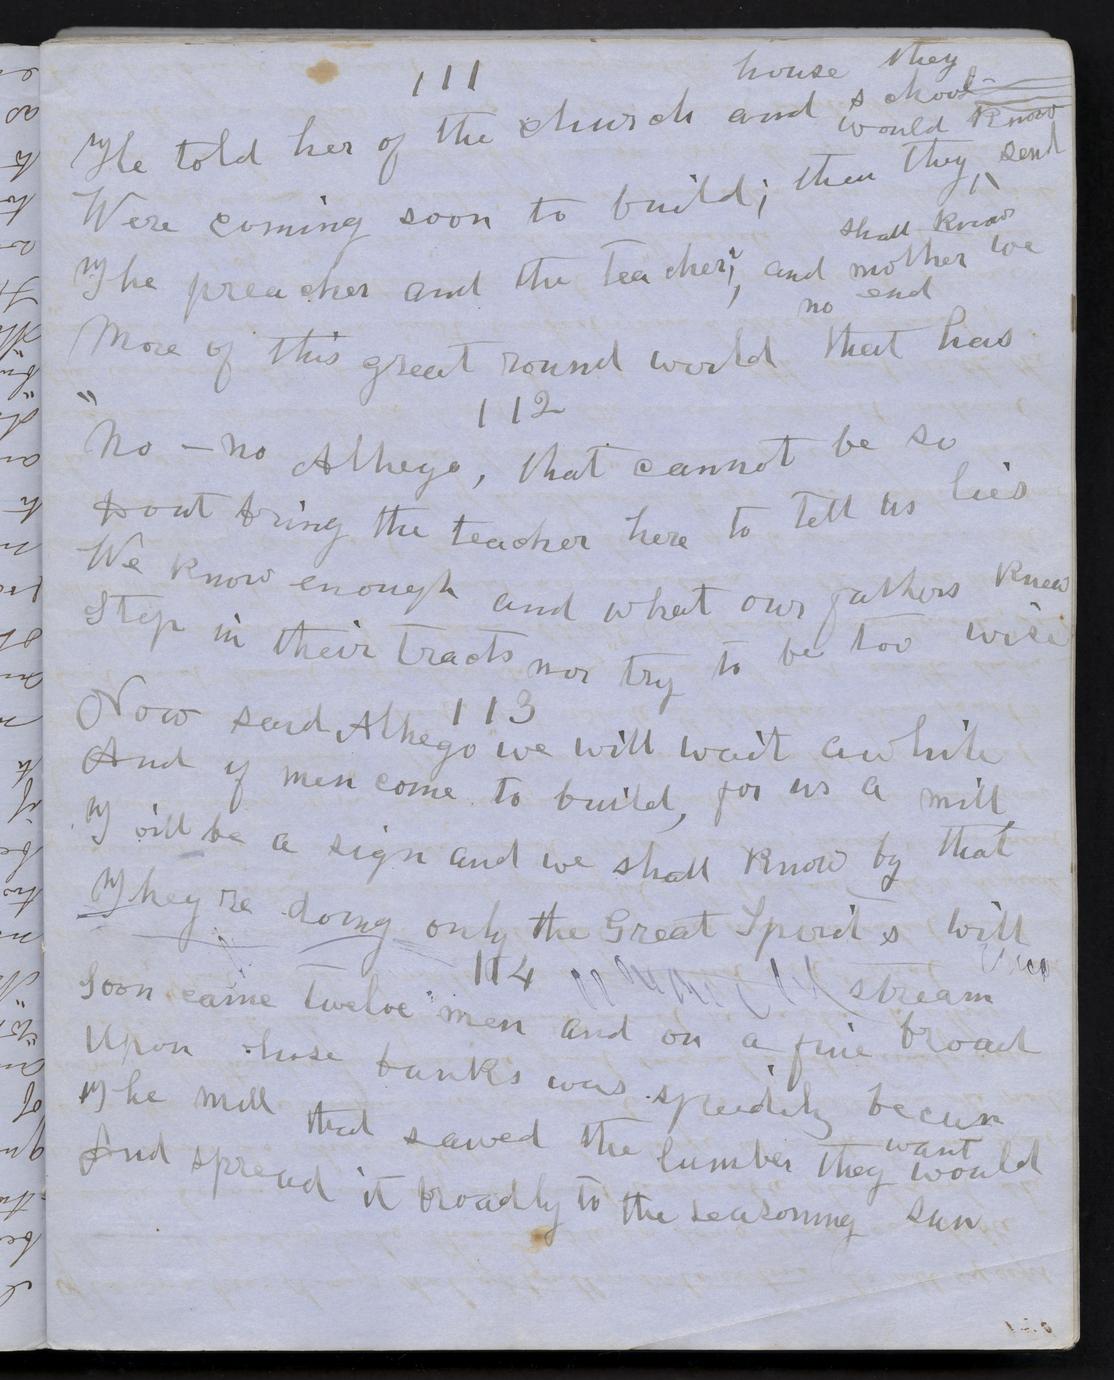 111
house they
He told her of the church and school
would know
Were coming soon to build; then they send
The preacher and the teacher; and mother we
shall know
no end
More of this great round world that has
112
"No - no Alhego, that cannot be so
Dont bring the teacher here to tell us lies
We know enough and what our fathers knew
Step in their tracts nor try to be too wise
113
Now said Alhego we will wait awhile
And if men come to build, for us a mill
T will be a sign and we shall know by that
They re doing only the Great Spirit s will
114
Soon came twelve men and on a fine broad
stream
Upon whose banks was speedily begun
The mill that sawed the lumber they would
want
And spread it broadly to the seasoning sun